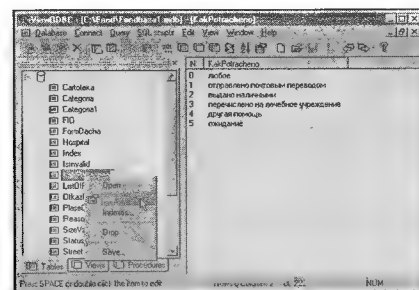 iViewODBC - [E:\Fond\Fondbaza1.mdb] - [KakPotracheno]
Database Connect Query SQL Edit View Window Help
Cartoteka
Categoria
Categoria1
FIO
FormDacha
Hospital
Index
Isinvalid
ListOtF
Otkazl
PlaseC
Reaso
SizeVs
Status
Street
Open
Indexes...
Drop
Save...
Tables Views Procedures
N KakPotracheno
0 любое
1 отправлено почтовым переводом
2 выдано наличными
3 перечислено на лечебное учреждение
4 другая помощь
5 ожидание
Press SPACE or double click the item to edit
NUM